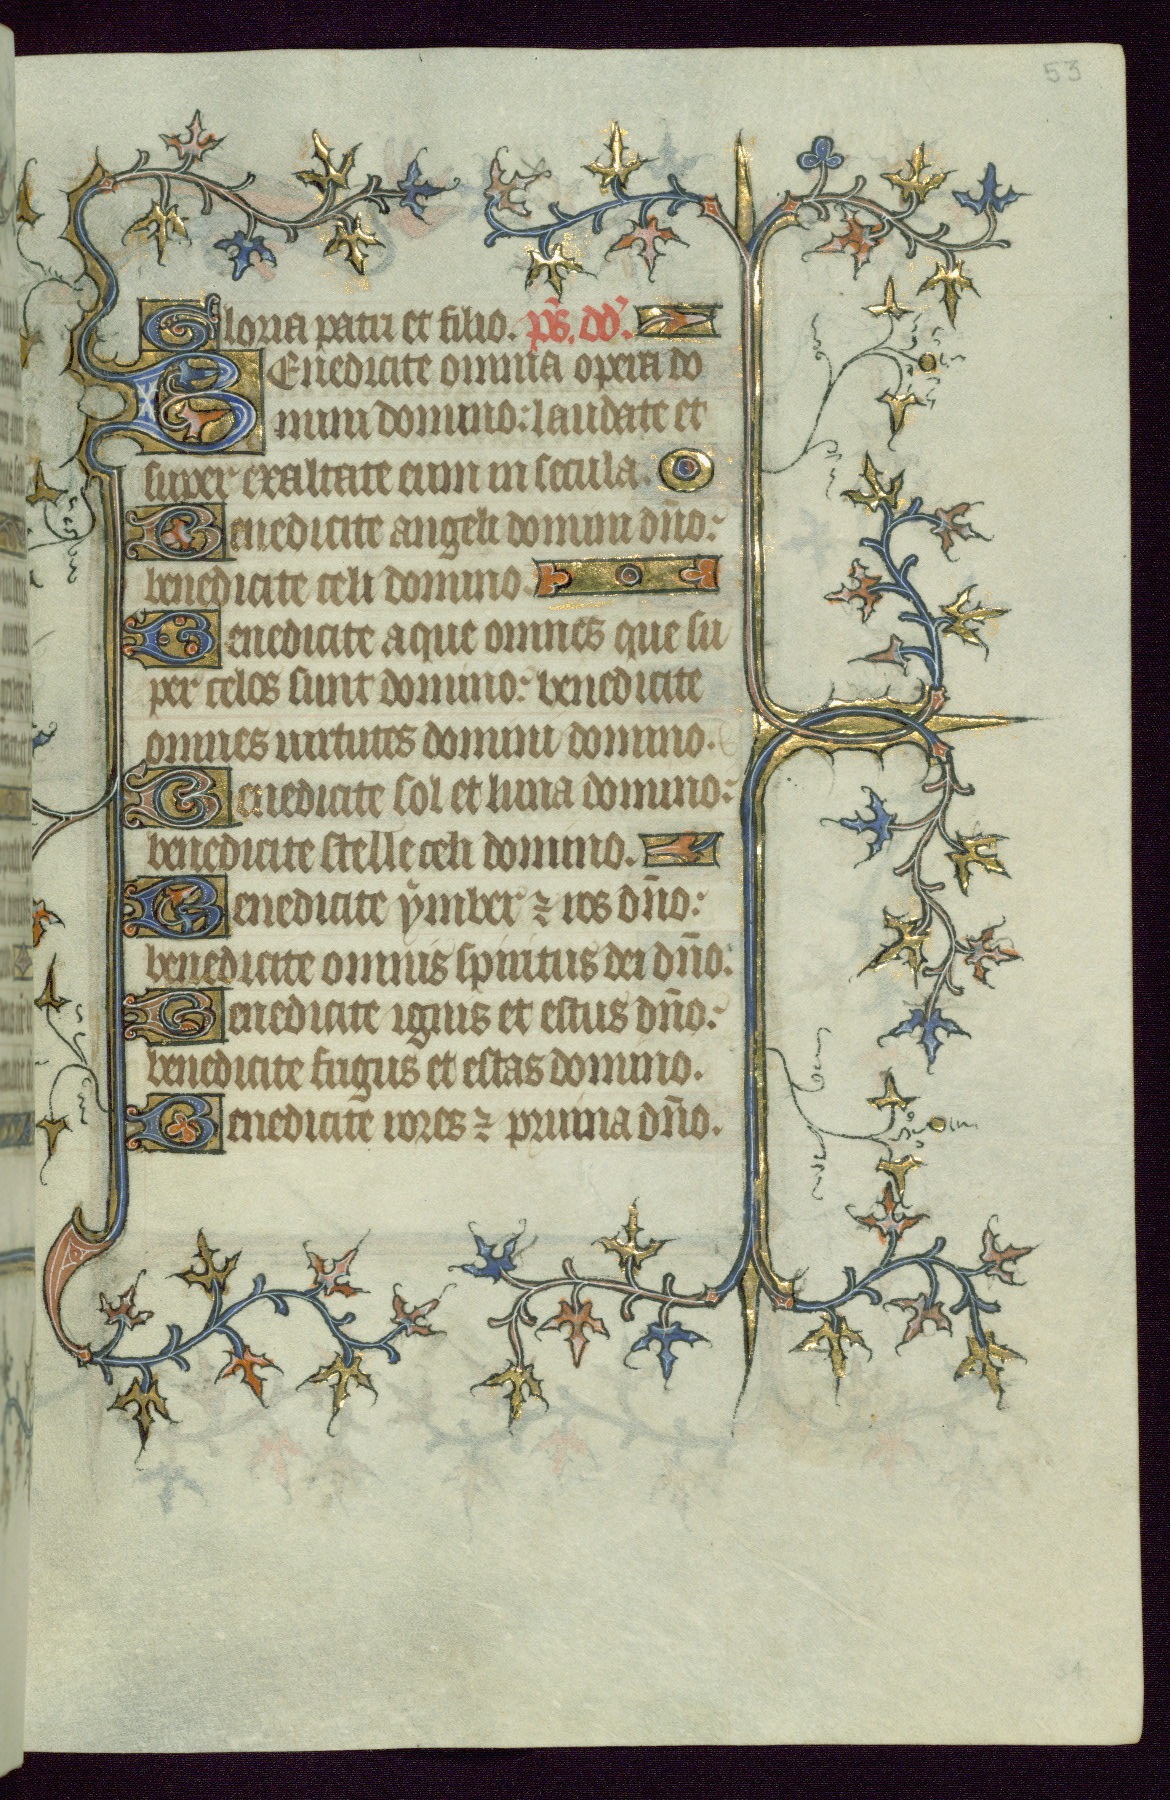 53
Gloria patri et filio. ps. dd'.
Benedicite omnia opera do
mini domino: laudate et
super exaltate eum in secula.
Benedicite angeli domini dño:
benedicite celi domino.
Benedicite aque omnes que su
per celos sunt domino: benedicite
omnes uirtutes domini domino.
Benedicite sol et luna domino:
benedicite stelle celi domino.
Benedicite ymber ⁊ ros dño:
benedicite omnis spiritus dei dño:
Benedicite ignis et estus dño:
benedicite frigus et estas domino.
Benedicite rores ⁊ pruina dño.